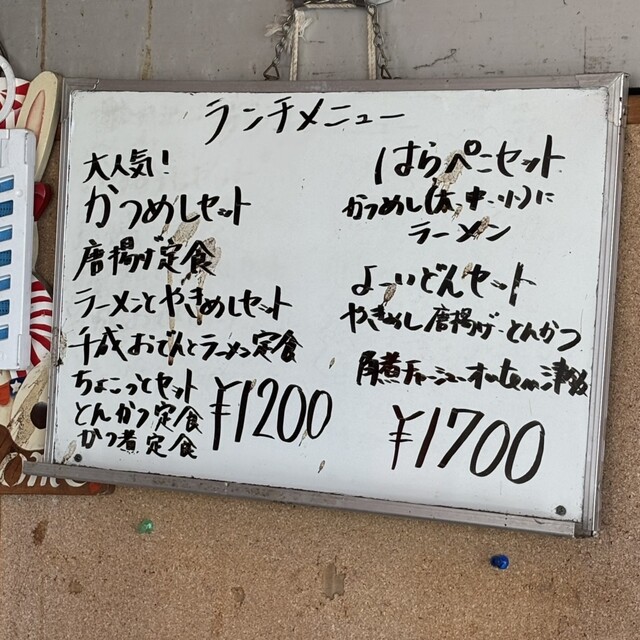 ランチメニュー
大人気！
かつめしセット
唐揚げ定食
ラーメンとやきめしセット
千成おでんとラーメン定食
ちょこっとセット
とんかつ定食
かつ煮定食
¥1200
はらぺこセット
かつめし(大・中・小)に
ラーメン
よーいどんセット
やきめし唐揚げとんかつ
角煮チャーシュー
¥1700